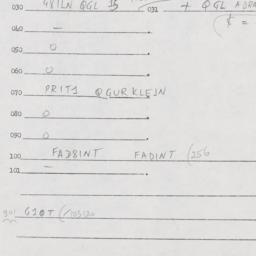 030 G8ILN QGL 031 + QGL
($ =
040 —
050 0
060 0
070 PRIT1 QGURKLEIN
080 0
090 0
100 FAD8INT FADINT (256
101 —
901 G10T